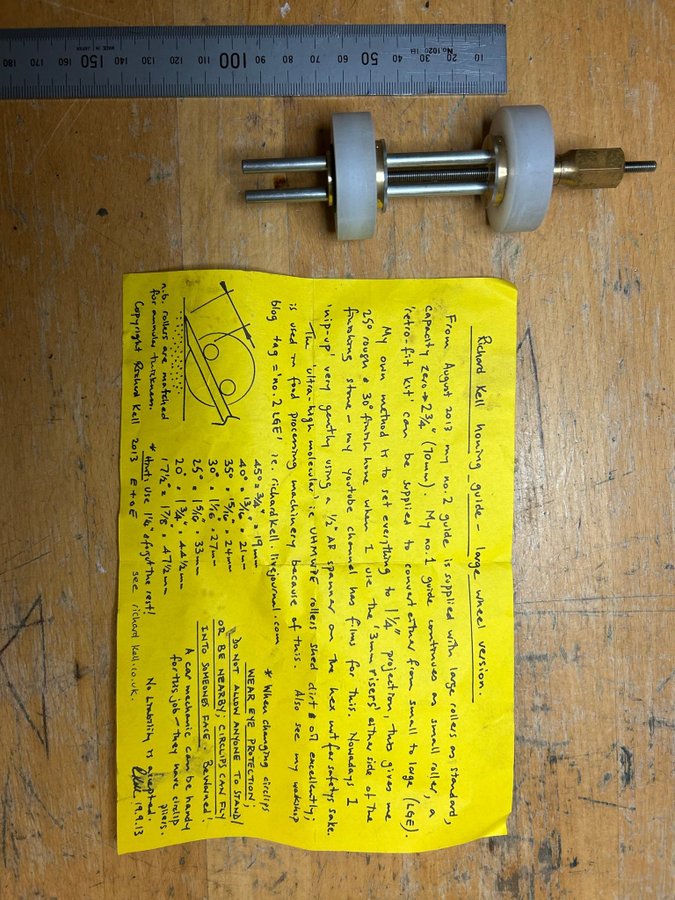 No. 1020 1B
MADE IN JAPAN
10 20 30 40 50 60 70 80 90 100 110 120 130 140 150 160 170 180
Richard Kell honing guide – large wheel version.
From August 2013 my no.2 guide is supplied with large rollers as standard,
capacity zero → 2¾" (70mm). My no.1 guide continues as small roller, a
'retro-fit kit' can be supplied to convert either from small to large (LGE).
My own method is to set everything to 1¼" projection, this gives me
25° rough & 30° finish hone when I use the '3mm risers' either side of the
finishing stone – my youtube channel has films for this. Nowadays I
'nip-up' very gently using a ½" AF spanner on the hex nut for safetys sake.
The 'ultra-high molecular' ie UHMWPE rollers shed dirt & oil excellently,
is used in food processing machinery because of this. Also see my workshop
blog tag = 'no.2 LGE' ie. richardkell.livejournal.com
45° = ¾" = 19mm
40° = 13/16" = 21mm
35° = 15/16" = 24mm
30° = 1 1/16" = 27mm
25° = 1 5/16" = 33mm
20° = 1¾" = 44½mm
17½° = 1 7/8" = 47½mm
* Hint: use 1¼" & forget the rest!
* When changing circlips
WEAR EYE PROTECTION;
DO NOT ALLOW ANYONE TO STAND/
OR BE NEARBY; CIRCLIPS CAN FLY
INTO SOMEONES FACE. Be Warned!
A car mechanic can be handy
for this job – they have circlip
pliers.
No liability is accepted.
19.9.13
n.b. rollers are matched
for annular thickness.
Copyright Richard Kell 2013 E+OE see richardkell.co.uk.